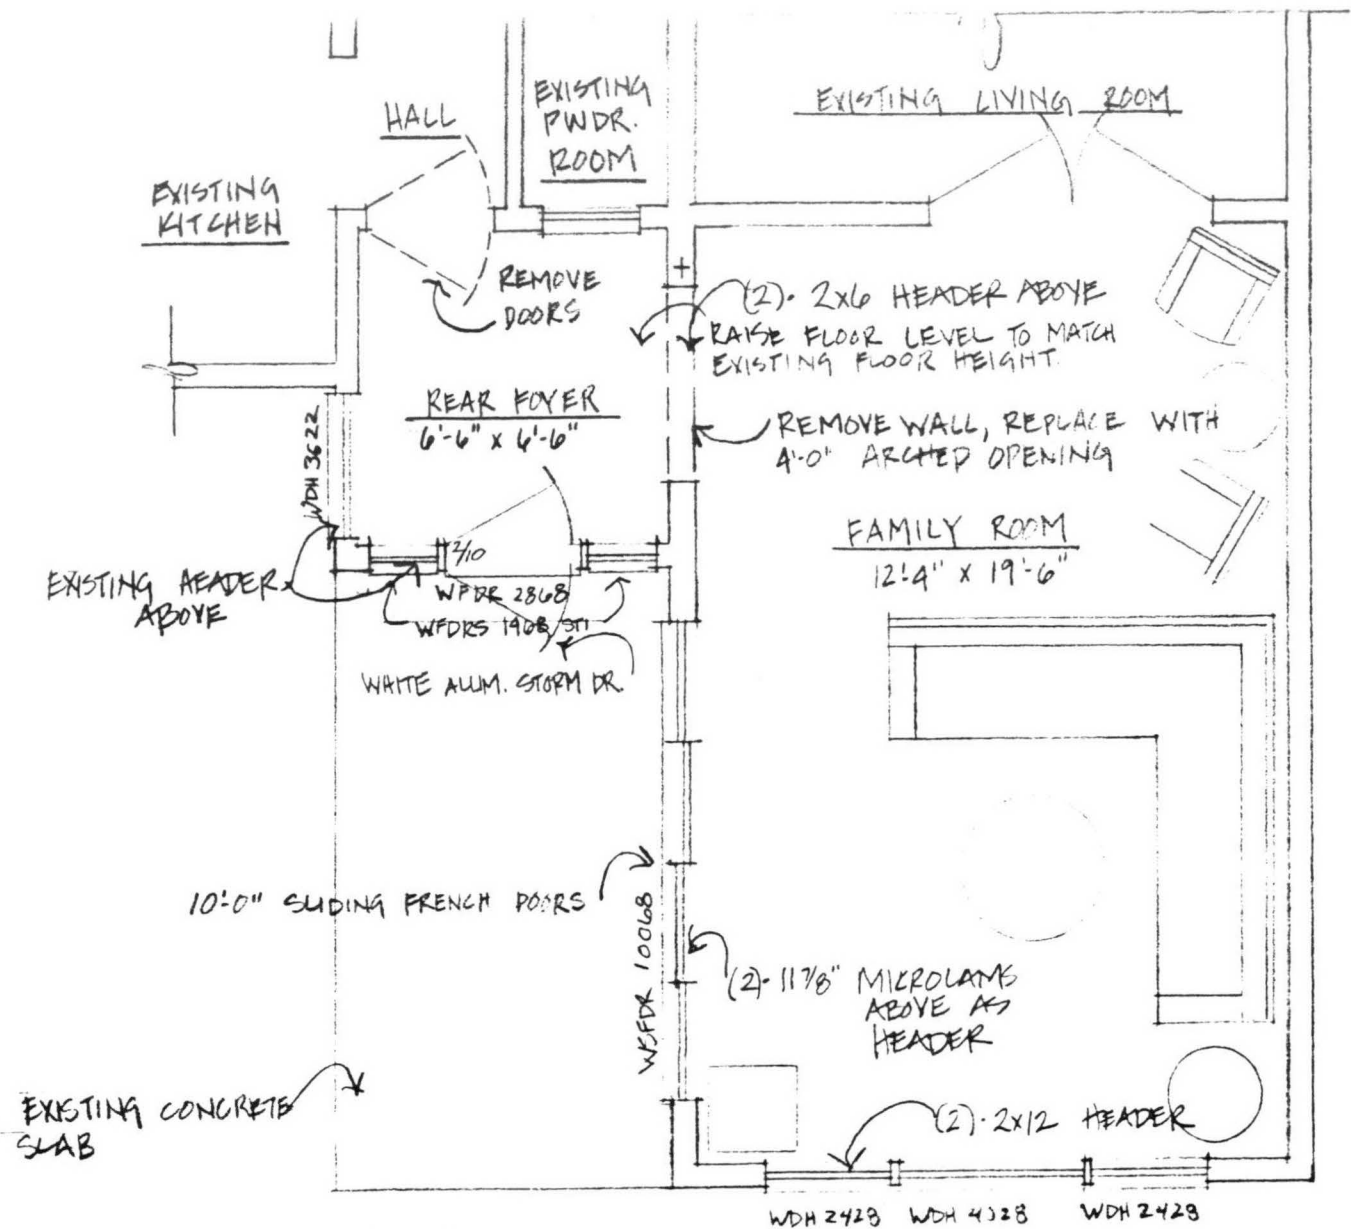 HALL
EXISTING
PWDR.
ROOM
EXISTING LIVING ROOM
EXISTING
KITCHEN
REMOVE
DOORS
(2)- 2x6 HEADER ABOVE
RAISE FLOOR LEVEL TO MATCH
EXISTING FLOOR HEIGHT.
REAR FOYER
6'-6" x 6'-6"
REMOVE WALL, REPLACE WITH
4'-0" ARCHED OPENING
WDH 3622
FAMILY ROOM
12'-4" x 19'-6"
2/10
EXISTING HEADER
ABOVE
WFDR 2868
WFDRS 1968 STI
WHITE ALUM. STORM DR.
10'-0" SLIDING FRENCH DOORS
WSFDR 10068
(2)- 11 7/8" MICROLAMS
ABOVE AS
HEADER
EXISTING CONCRETE
SLAB
(2)- 2x12 HEADER
WDH 2428 WDH 4328 WDH 2428